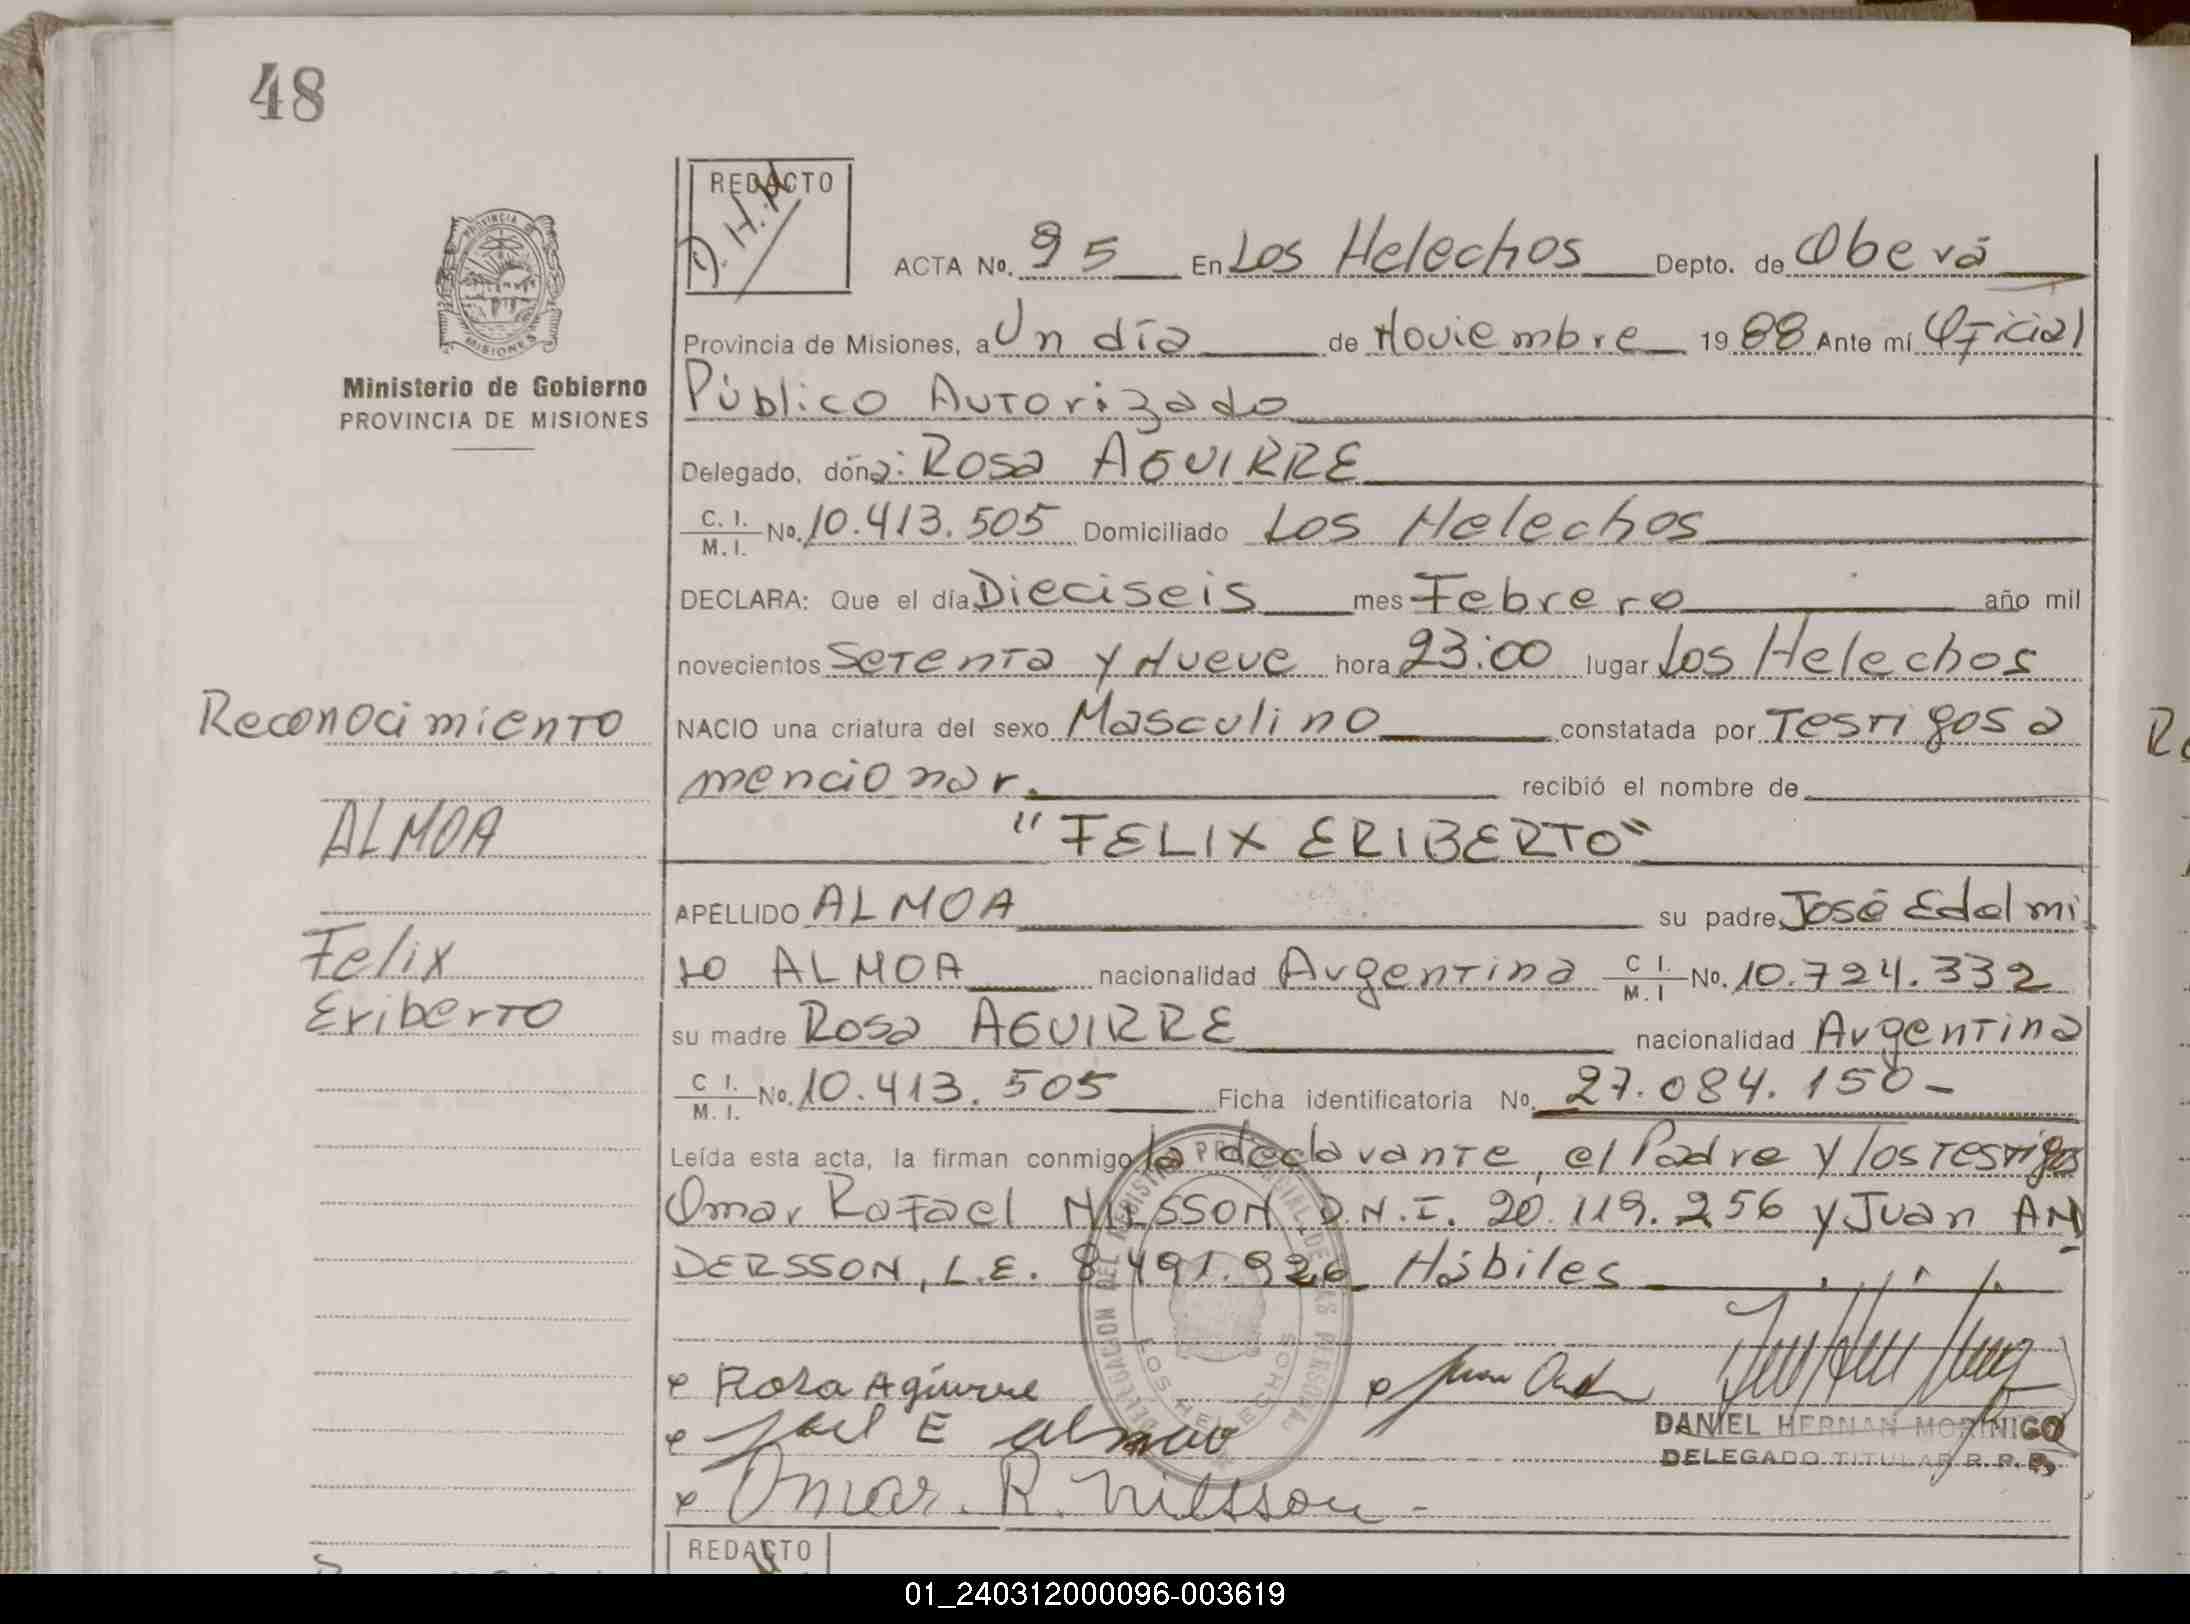 48
REDACTO
D. H. M
ACTA No. 95 En Los Helechos Depto. de Oberá
PROVINCIA DE MISIONES
Provincia de Misiones, a Un día de Noviembre 1988 Ante mí Oficial
Ministerio de Gobierno
PROVINCIA DE MISIONES
Público Autorizado
Delegado, dóña: Rosa AGUIRRE
C. I. M. I. No. 10.413.505 Domiciliado Los Helechos
DECLARA: Que el día Dieciseis mes Febrero año mil
novecientos Setenta y Nueve hora 23:00 lugar Los Helechos
Reconocimiento
NACIO una criatura del sexo Masculino constatada por Testigos a
mencionar. recibió el nombre de
"FELIX ERIBERTO"
ALMOA
APELLIDO ALMOA su padre José Edelmi
Felix
ro ALMOA nacionalidad Argentina C I. M. I No. 10.724.332
Eriberto
su madre Rosa AGUIRRE nacionalidad Argentina
C I. M. I. No. 10.413.505 Ficha identificatoria No. 27.084.150-
Leída esta acta, la firman conmigo la declarante, el Padre y los Testigos
Omar Rafael NILSSON D.N.I. 20.119.256 y Juan AN
DERSSON, L.E. 8.491.926 Hábiles
DELEGACION DEL REGISTRO PROVINCIAL DE LAS PERSONAS
LOS HELECHOS
Rosa Aguirre
José E Almoa
DANIEL HERNAN MORINIGO
DELEGADO TITULAR R. P. P.
Omar. R. Nilsson -
REDACTO
01_240312000096-003619